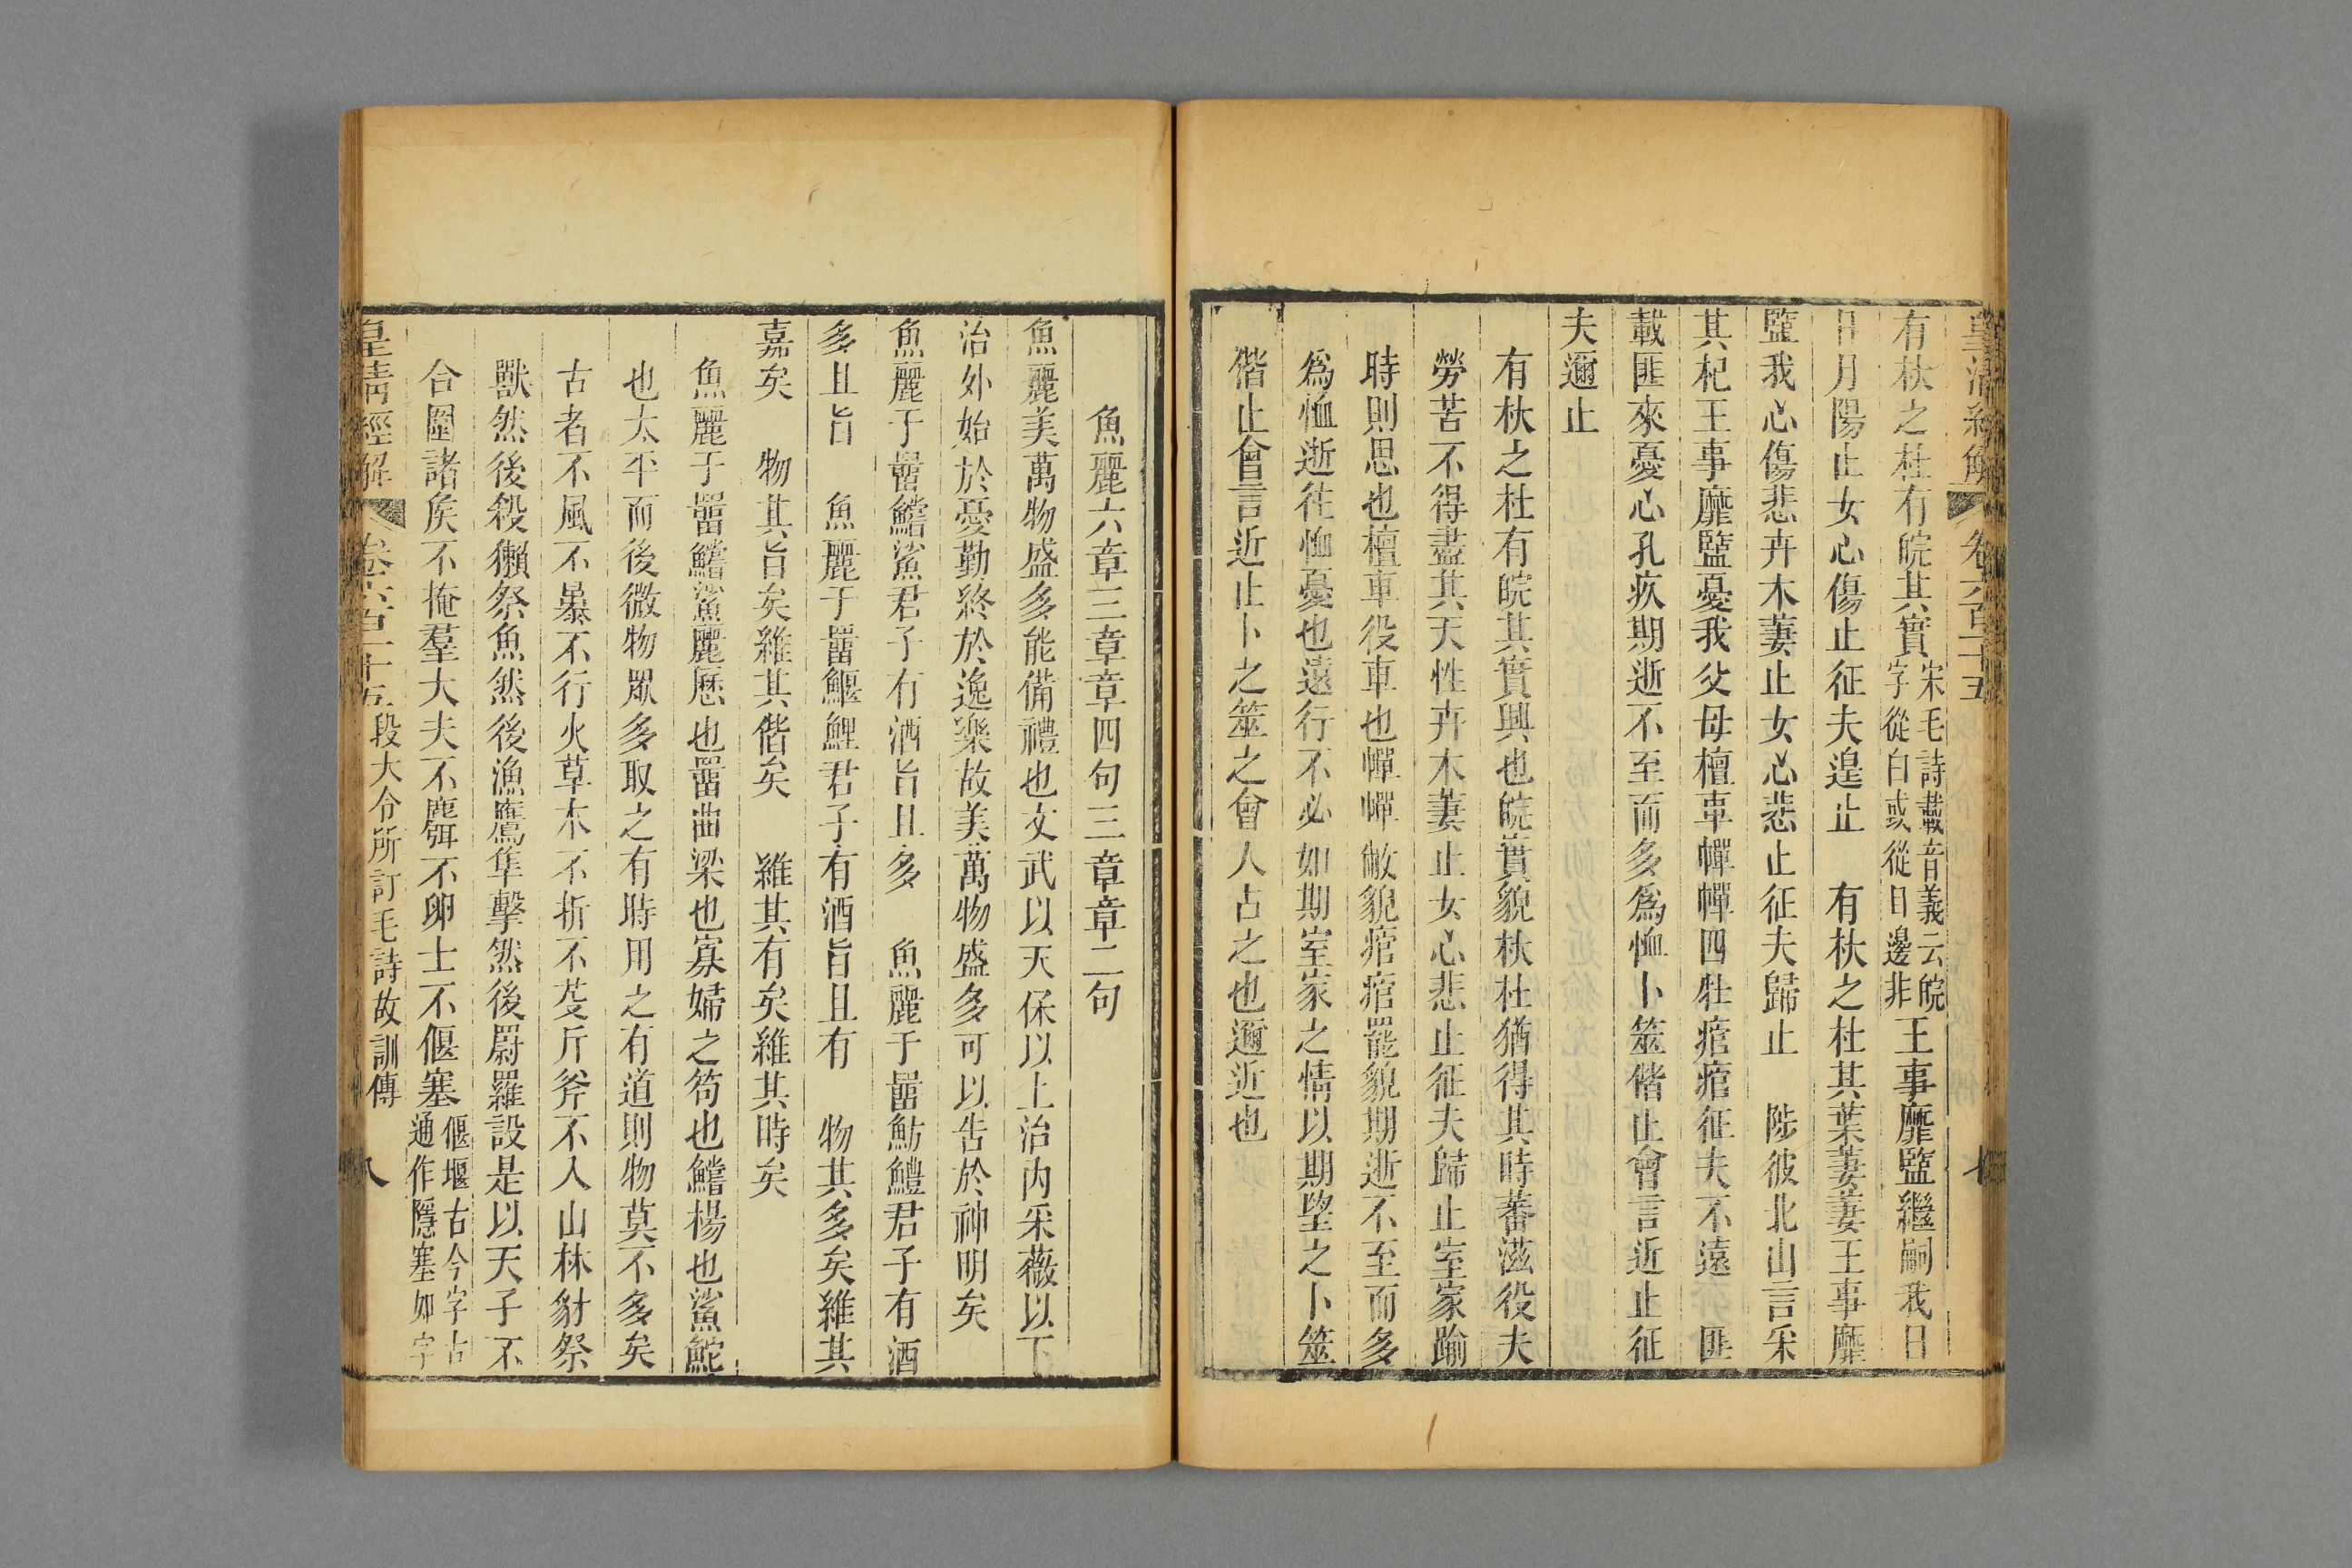 皇清經解 卷六百二十五 七
有杕之杜有睆其實宋毛詩載音義云睆字從白或從日邊非王事靡盬繼嗣我日
日月陽止女心傷止征夫遑止 有杕之杜其葉萋萋王事靡
盬我心傷悲卉木萋止女心悲止征夫歸止 陟彼北山言采
其杞王事靡盬憂我父母檀車幝幝四牡痯痯征夫不遠 匪
載匪來憂心孔疚期逝不至而多爲恤卜筮偕止會言近止征
夫邇止
有杕之杜有睆其實興也睆實貌杕杜猶得其時蕃滋役夫
勞苦不得盡其天性卉木萋止女心悲止征夫歸止室家踰
時則思也檀車役車也幝幝敝貌痯痯罷貌期逝不至而多
爲恤逝往恤憂也遠行不必如期室家之情以期望之卜筮
偕止會言近止卜之筮之會人占之也邇近也
魚麗六章三章章四句三章章二句
魚麗美萬物盛多能備禮也文武以天保以上治內采薇以下
治外始於憂勤終於逸樂故美萬物盛多可以告於神明矣
魚麗于罶鱨鯊君子有酒旨且多 魚麗于罶魴鱧君子有酒
多且旨 魚麗于罶鰋鯉君子有酒旨且有 物其多矣維其
嘉矣 物其旨矣維其偕矣 維其有矣維其時矣
魚麗于罶鱨鯊麗歷也罶曲梁也寡婦之笱也鱨楊也鯊鮀
也太平而後微物眾多取之有時用之有道則物莫不多矣
古者不風不暴不行火草木不折不芟斤斧不入山林豺祭
獸然後殺獺祭魚然後漁鷹隼擊然後罻羅設是以天子不
合圍諸矦不掩羣大夫不麛不卵士不偃塞偃堰古今字古通作隱塞如字
皇清經解 卷六百二十五 段大令所訂毛詩故訓傳 八